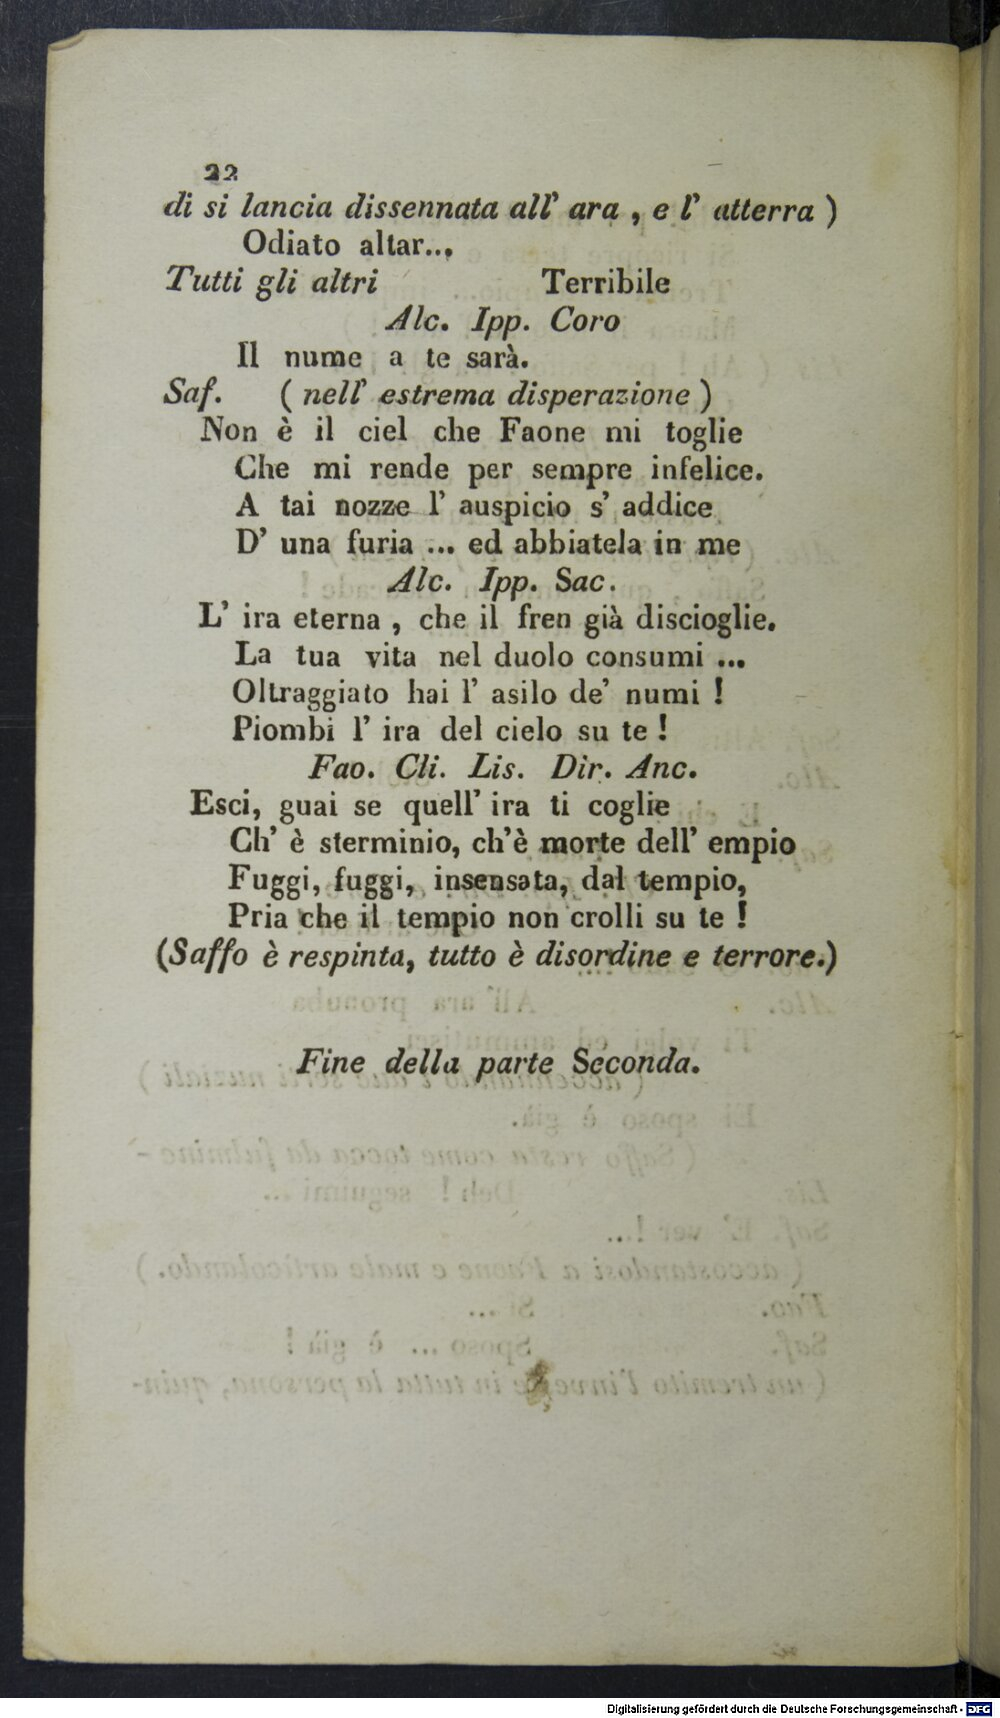 22
di si lancia dissennata all' ara , e l' atterra )
Odiato altar...
Tutti gli altri Terribile
Alc. Ipp. Coro
Il nume a te sarà.
Saf. ( nell' estrema disperazione )
Non è il ciel che Faone mi toglie
Che mi rende per sempre infelice.
A tai nozze l' auspicio s' addice
D' una furia ... ed abbiatela in me
Alc. Ipp. Sac.
L' ira eterna , che il fren già discioglie.
La tua vita nel duolo consumi ...
Oltraggiato hai l' asilo de' numi !
Piombi l' ira del cielo su te !
Fao. Cli. Lis. Dir. Anc.
Esci, guai se quell' ira ti coglie
Ch' è sterminio, ch'è morte dell' empio
Fuggi, fuggi, insensata, dal tempio,
Pria che il tempio non crolli su te !
(Saffo è respinta, tutto è disordine e terrore.)
Fine della parte Seconda.
Digitalisierung gefördert durch die Deutsche Forschungsgemeinschaft - DFG